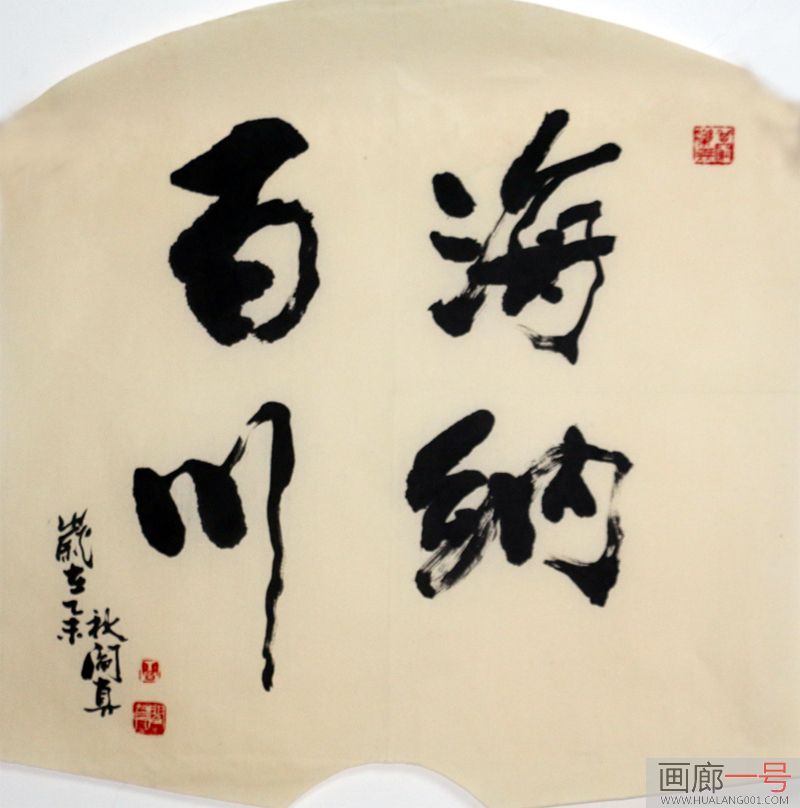 海纳
百川
岁在乙未
秋阎真
画廊一号
WWW.HUALANG001.COM